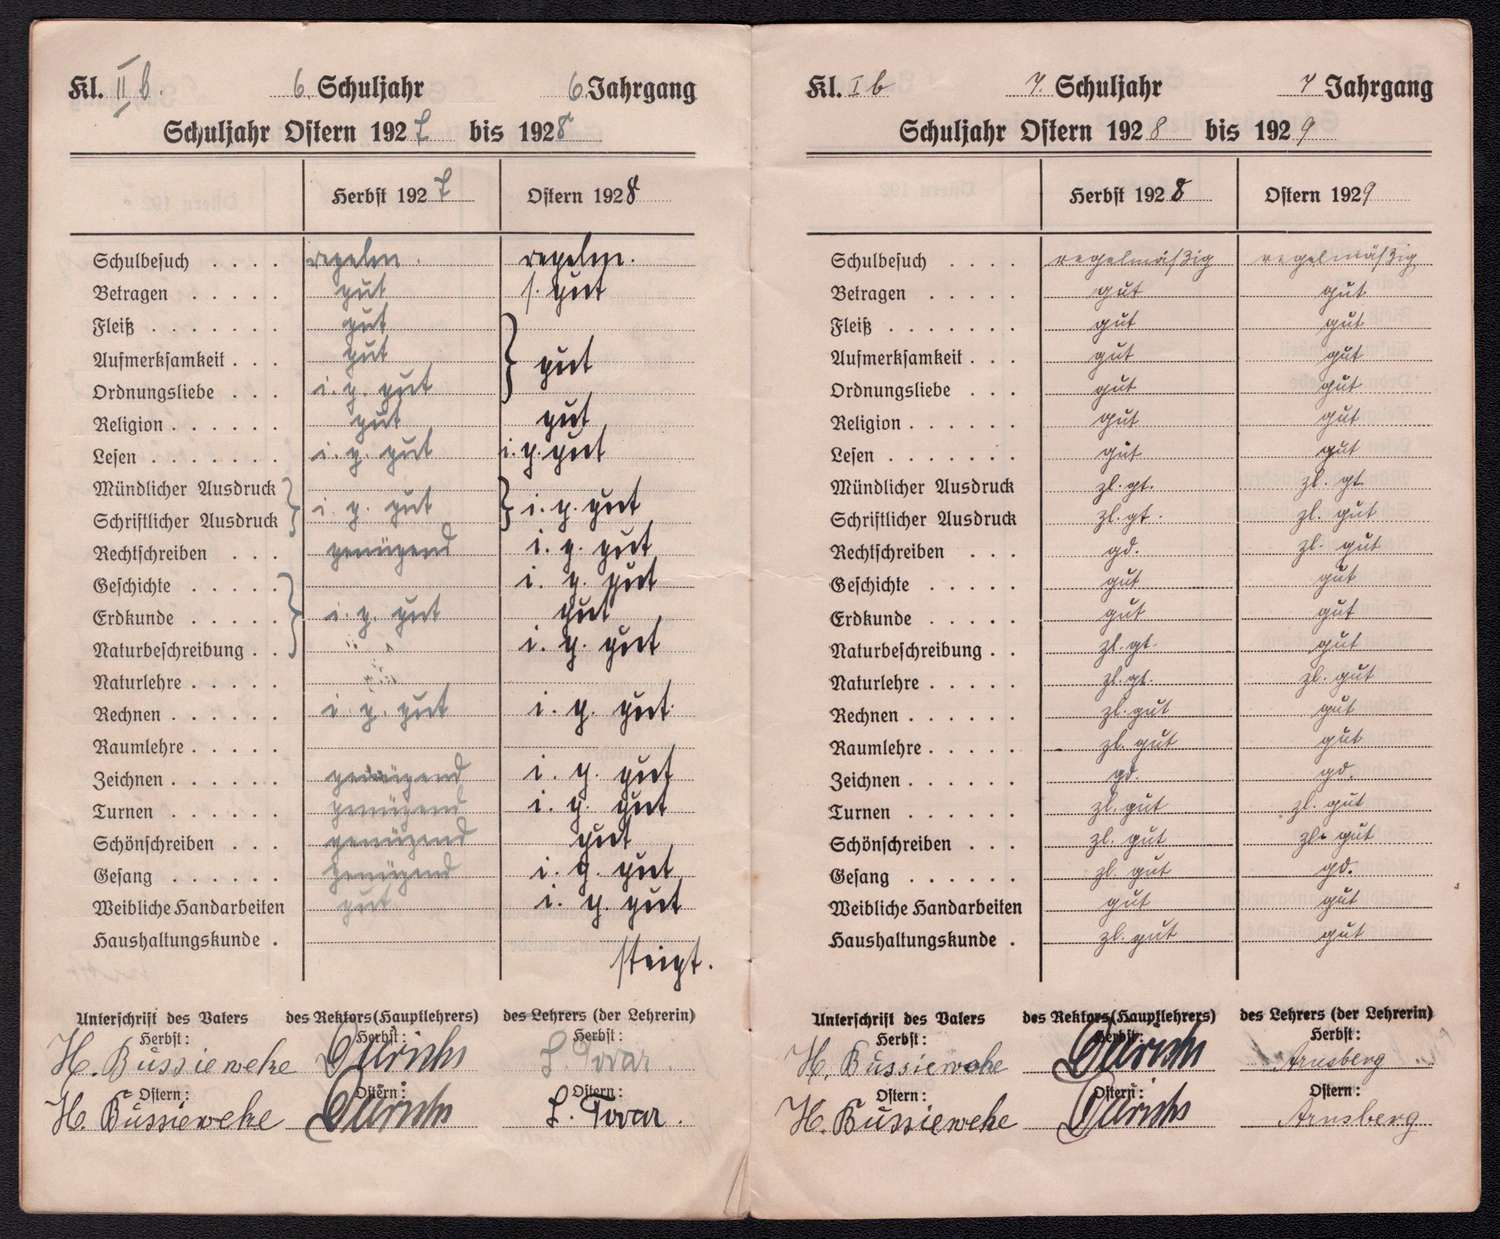 Kl. II b. 6. Schuljahr 6. Jahrgang
Schuljahr Ostern 1927 bis 1928
Herbst 1927 Ostern 1928
Schulbesuch . . . . regelm. regelm.
Betragen . . . . . gut s. gut
Fleiß . . . . . . . gut
Aufmerksamkeit . . . gut gut
Ordnungsliebe . . . i. g. gut
Religion . . . . . . gut gut
Lesen . . . . . . . i. g. gut i. g. gut
Mündlicher Ausdruck
Schriftlicher Ausdruck i. g. gut i. g. gut
Rechtschreiben . . . genügend i. g. gut
Geschichte . . . . . i. g. gut
Erdkunde . . . . . i. g. gut gut
Naturbeschreibung . . i. g. gut
Naturlehre . . . . .
Rechnen . . . . . . i. g. gut i. g. gut.
Raumlehre . . . . .
Zeichnen . . . . . . genügend i. g. gut
Turnen . . . . . . genügend i. g. gut
Schönschreiben . . . genügend gut
Gesang . . . . . . genügend i. g. gut
Weibliche Handarbeiten gut i. g. gut
Haushaltungskunde .
steigt.
Unterschrift des Vaters des Rektors (Hauptlehrers) des Lehrers (der Lehrerin)
Herbst: Herbst: Herbst:
H. Bussieweke Ollrichs L. Tovar.
Ostern: Ostern: Ostern:
H. Büssieweke Ollrichs L. Tovar.
Kl. I b 7. Schuljahr 7 Jahrgang
Schuljahr Ostern 1928 bis 1929
Herbst 1928 Ostern 1929
Schulbesuch . . . . regelmäßig regelmäßig
Betragen . . . . . gut gut
Fleiß . . . . . . . gut gut
Aufmerksamkeit . . . gut gut
Ordnungsliebe . . . gut gut
Religion . . . . . . gut gut
Lesen . . . . . . . gut gut
Mündlicher Ausdruck zl. gt. zl. gt
Schriftlicher Ausdruck zl. gt. zl. gut
Rechtschreiben . . . gd. zl. gut
Geschichte . . . . . gut gut
Erdkunde . . . . . gut gut
Naturbeschreibung . . zl. gt. gut
Naturlehre . . . . . zl. gt. zl. gut
Rechnen . . . . . . zl. gut gut
Raumlehre . . . . . zl. gut gut
Zeichnen . . . . . . gd. gd.
Turnen . . . . . . zl. gut zl. gut
Schönschreiben . . . zl. gut zl. gut
Gesang . . . . . . zl. gut gd.
Weibliche Handarbeiten gut gut
Haushaltungskunde . zl. gut gut
Unterschrift des Vaters des Rektors (Hauptlehrers) des Lehrers (der Lehrerin)
Herbst: Herbst: Herbst:
H. Büssieweke Ollrichs Arnsberg
Ostern: Ostern: Ostern:
H. Büssieweke Ollrichs Arnsberg